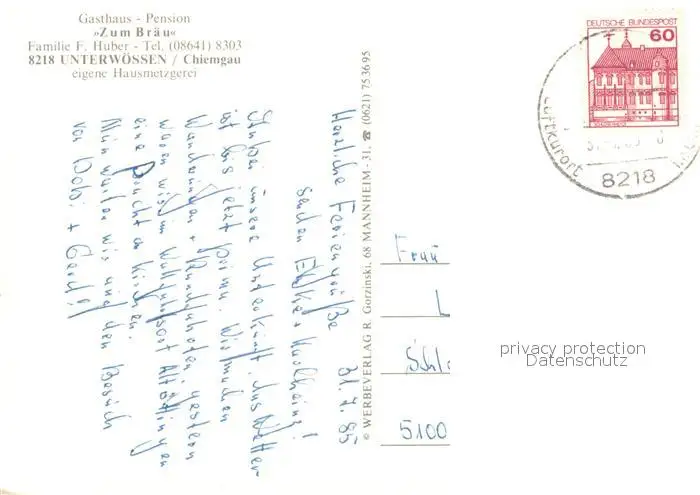 Gasthaus - Pension
»Zum Bräu«
Familie F. Huber - Tel. (08641) 8303
8218 UNTERWÖSSEN / Chiemgau
eigene Hausmetzgerei
DEUTSCHE BUNDESPOST
60
Luftkurort
8218
31.7.85
Herzliche Feriengrüße
senden Elfke + Karlheinz!
Anbei unsere Unterkunft, das Wetter
ist bis jetzt prima. Wir machen
Wanderungen + Rundfahrten, gestern
waren wir im Wallfahrtsort Altöttingen
eine Pracht an Kirchen.
Nun warten wir auf den Besuch
von Bobi + Gerd!
© WERBEVERLAG R. Gorzinski, 68 MANNHEIM-31, ☎ (0621) 753695
Frau
L
Schl
5100
privacy protection
Datenschutz